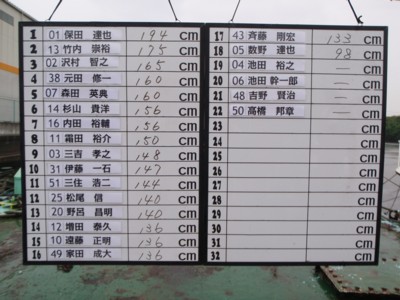 1 01 保田 達也 194 cm
2 13 竹内 崇裕 175 cm
3 02 沢村 智之 165 cm
4 38 元田 修一 160 cm
5 07 森田 英典 160 cm
6 14 杉山 貴洋 156 cm
7 16 内田 裕輔 156 cm
8 11 霜田 裕介 150 cm
9 03 三吉 孝之 148 cm
10 31 伊藤 一石 147 cm
11 51 三住 浩二 144 cm
12 25 松尾 信 140 cm
13 20 野呂 昌明 140 cm
14 12 増田 泰久 136 cm
15 10 遠藤 正明 136 cm
16 49 家田 成大 136 cm
17 43 斉藤 剛宏 133 cm
18 05 数野 達也 98 cm
19 04 池田 裕之 — cm
20 06 池田 幹一郎 — cm
21 48 吉野 賢治 — cm
22 50 高橋 邦章 — cm
23 cm
24 cm
25 cm
26 cm
27 cm
28 cm
29 cm
30 cm
31 cm
32 cm